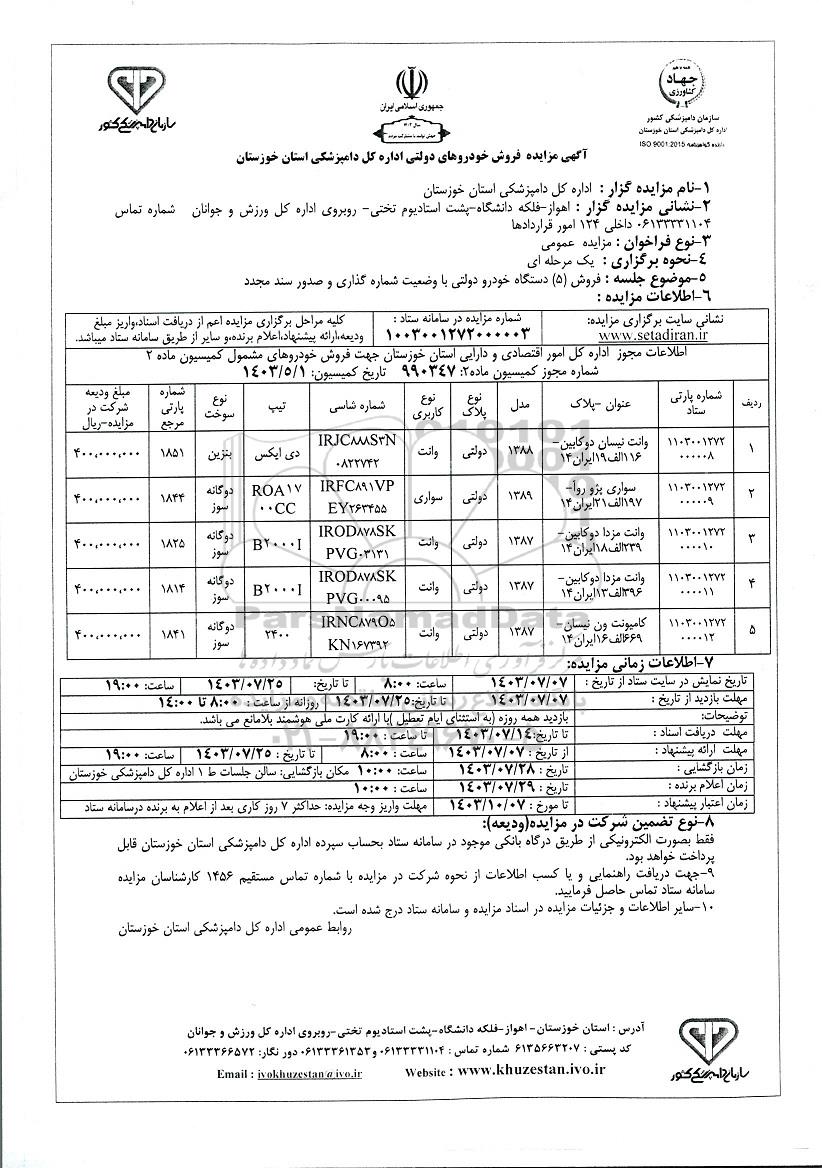 جهاد
کشاورزی
سازمان دامپزشکی کشور
اداره کل دامپزشکی استان خوزستان
ISO 9001:2015
جمهوری اسلامی ایران
سازمان دامپزشکی کشور
آگهی مزایده فروش خودروهای دولتی اداره کل دامپزشکی استان خوزستان
۱-نام مزایده گزار : اداره کل دامپزشکی استان خوزستان
۲-نشانی مزایده گزار : اهواز-فلکه دانشگاه-پشت استادیوم تختی- روبروی اداره کل ورزش و جوانان شماره تماس
۰۶۱۳۳۳۳۱۱۰۴ داخلی ۱۲۴ امور قراردادها
۳-نوع فراخوان : مزایده عمومی
۴-نحوه برگزاری : یک مرحله ای
۵-موضوع جلسه : فروش (۵) دستگاه خودرو دولتی با وضعیت شماره گذاری و صدور سند مجدد
۶-اطلاعات مزایده :
نشانی سایت برگزاری مزایده: www.setadiran.ir
شماره مزایده در سامانه ستاد : ۱۰۰۳۰۰۱۲۷۲۰۰۰۰۰۳
کلیه مراحل برگزاری مزایده اعم از دریافت اسناد،واریز مبلغ ودیعه،ارائه پیشنهاد،اعلام برنده،و سایر از طریق سامانه ستاد میباشد.
اطلاعات مجوز اداره کل امور اقتصادی و دارایی استان خوزستان جهت فروش خودروهای مشمول کمیسیون ماده ۲
شماره مجوز کمیسیون ماده۲: ۹۹۰۳۴۷ تاریخ کمیسیون: ۱۴۰۳/۵/۱
ردیف شماره پارتی ستاد عنوان -پلاک مدل نوع پلاک نوع کاربری شماره شاسی تیپ نوع سوخت شماره پارتی مرجع مبلغ ودیعه شرکت در مزایده-ریال
۱ ۱۱۰۳۰۰۱۲۷۲۰۰۰۰۰۸ وانت نیسان دوکابین-۱۱۶الف۱۹ایران۱۴ ۱۳۸۸ دولتی وانت IRJC۸۸۸S۲N۰۸۲۲۷۴۲ دی ایکس بنزین ۱۸۵۱ ۴۰۰،۰۰۰،۰۰۰
۲ ۱۱۰۳۰۰۱۲۷۲۰۰۰۰۰۹ سواری پژو روا-۱۹۷الف۲۱ایران۱۴ ۱۳۸۹ دولتی سواری IRFC۸۹۱VPEY۲۶۳۴۵۵ ROA۱۷۰۰CC دوگانه سوز ۱۸۴۴ ۴۰۰،۰۰۰،۰۰۰
۳ ۱۱۰۳۰۰۱۲۷۲۰۰۰۰۱۰ وانت مزدا دوکابین-۲۳۹الف۱۸ایران۱۴ ۱۳۸۷ دولتی وانت IROD۸۷۸SKPVG۰۳۱۳۱ B۲۰۰۰I دوگانه سوز ۱۸۲۵ ۴۰۰،۰۰۰،۰۰۰
۴ ۱۱۰۳۰۰۱۲۷۲۰۰۰۰۱۱ وانت مزدا دوکابین-۳۹۶الف۱۳ایران۱۴ ۱۳۸۷ دولتی وانت IROD۸۷۸SKPVG۰۰۰۹۵ B۲۰۰۰I دوگانه سوز ۱۸۱۴ ۴۰۰،۰۰۰،۰۰۰
۵ ۱۱۰۳۰۰۱۲۷۲۰۰۰۰۱۲ کامیونت ون نیسان-۶۶۹الف۱۶ایران۱۴ ۱۳۸۷ دولتی وانت IRNC۸۷۹O۵KN۱۶۷۳۹۲ ۲۴۰۰ دوگانه سوز ۱۸۴۱ ۴۰۰،۰۰۰،۰۰۰
ParsNamadData
۷-اطلاعات زمانی مزایده:
تاریخ نمایش در سایت ستاد از تاریخ : ۱۴۰۳/۰۷/۰۷ ساعت: ۸:۰۰ تا تاریخ: ۱۴۰۳/۰۷/۲۵ ساعت: ۱۹:۰۰
مهلت بازدید از تاریخ : ۱۴۰۳/۰۷/۰۷ تا تاریخ:۱۴۰۳/۰۷/۲۵ روزانه از ساعت : ۸:۰۰ تا ۱۴:۰۰
توضیحات: بازدید همه روزه (به استثنای ایام تعطیل )با ارائه کارت ملی هوشمند بلامانع می باشد.
مهلت دریافت اسناد : تا تاریخ:۱۴۰۳/۰۷/۱۴ تا ساعت : ۱۹:۰۰
مهلت ارائه پیشنهاد : از تاریخ : ۱۴۰۳/۰۷/۰۷ ساعت : ۸:۰۰ تا تاریخ : ۱۴۰۳/۰۷/۲۵ ساعت: ۱۹:۰۰
زمان بازگشایی : تاریخ : ۱۴۰۳/۰۷/۲۸ ساعت: ۱۰:۰۰ مکان بازگشایی: سالن جلسات ط ۱ اداره کل دامپزشکی خوزستان
زمان اعلام برنده : تاریخ : ۱۴۰۳/۰۷/۲۹ ساعت : ۱۰:۰۰
زمان اعتبار پیشنهاد : تا مورخ : ۱۴۰۳/۱۰/۰۷ مهلت واریز وجه مزایده: حداکثر ۷ روز کاری بعد از اعلام به برنده درسامانه ستاد
۸-نوع تضمین شرکت در مزایده(ودیعه):
فقط بصورت الکترونیکی از طریق درگاه بانکی موجود در سامانه ستاد بحساب سپرده اداره کل دامپزشکی استان خوزستان قابل
پرداخت خواهد بود.
۹-جهت دریافت راهنمایی و یا کسب اطلاعات از نحوه شرکت در مزایده با شماره تماس مستقیم ۱۴۵۶ کارشناسان مزایده
سامانه ستاد تماس حاصل فرمایید.
۱۰-سایر اطلاعات و جزئیات مزایده در اسناد مزایده و سامانه ستاد درج شده است.
روابط عمومی اداره کل دامپزشکی استان خوزستان
آدرس : استان خوزستان- اهواز-فلکه دانشگاه-پشت استادیوم تختی-روبروی اداره کل ورزش و جوانان
کد پستی : ۶۱۳۵۶۶۳۲۰۷ شماره تماس : ۰۶۱۳۳۳۳۱۱۰۴ و۰۶۱۳۳۳۶۱۳۵۳ دور نگار: ۰۶۱۳۳۳۶۶۵۷۲
Website : www.khuzestan.ivo.ir Email : ivokhuzestan@ivo.ir
سازمان دامپزشکی کشور